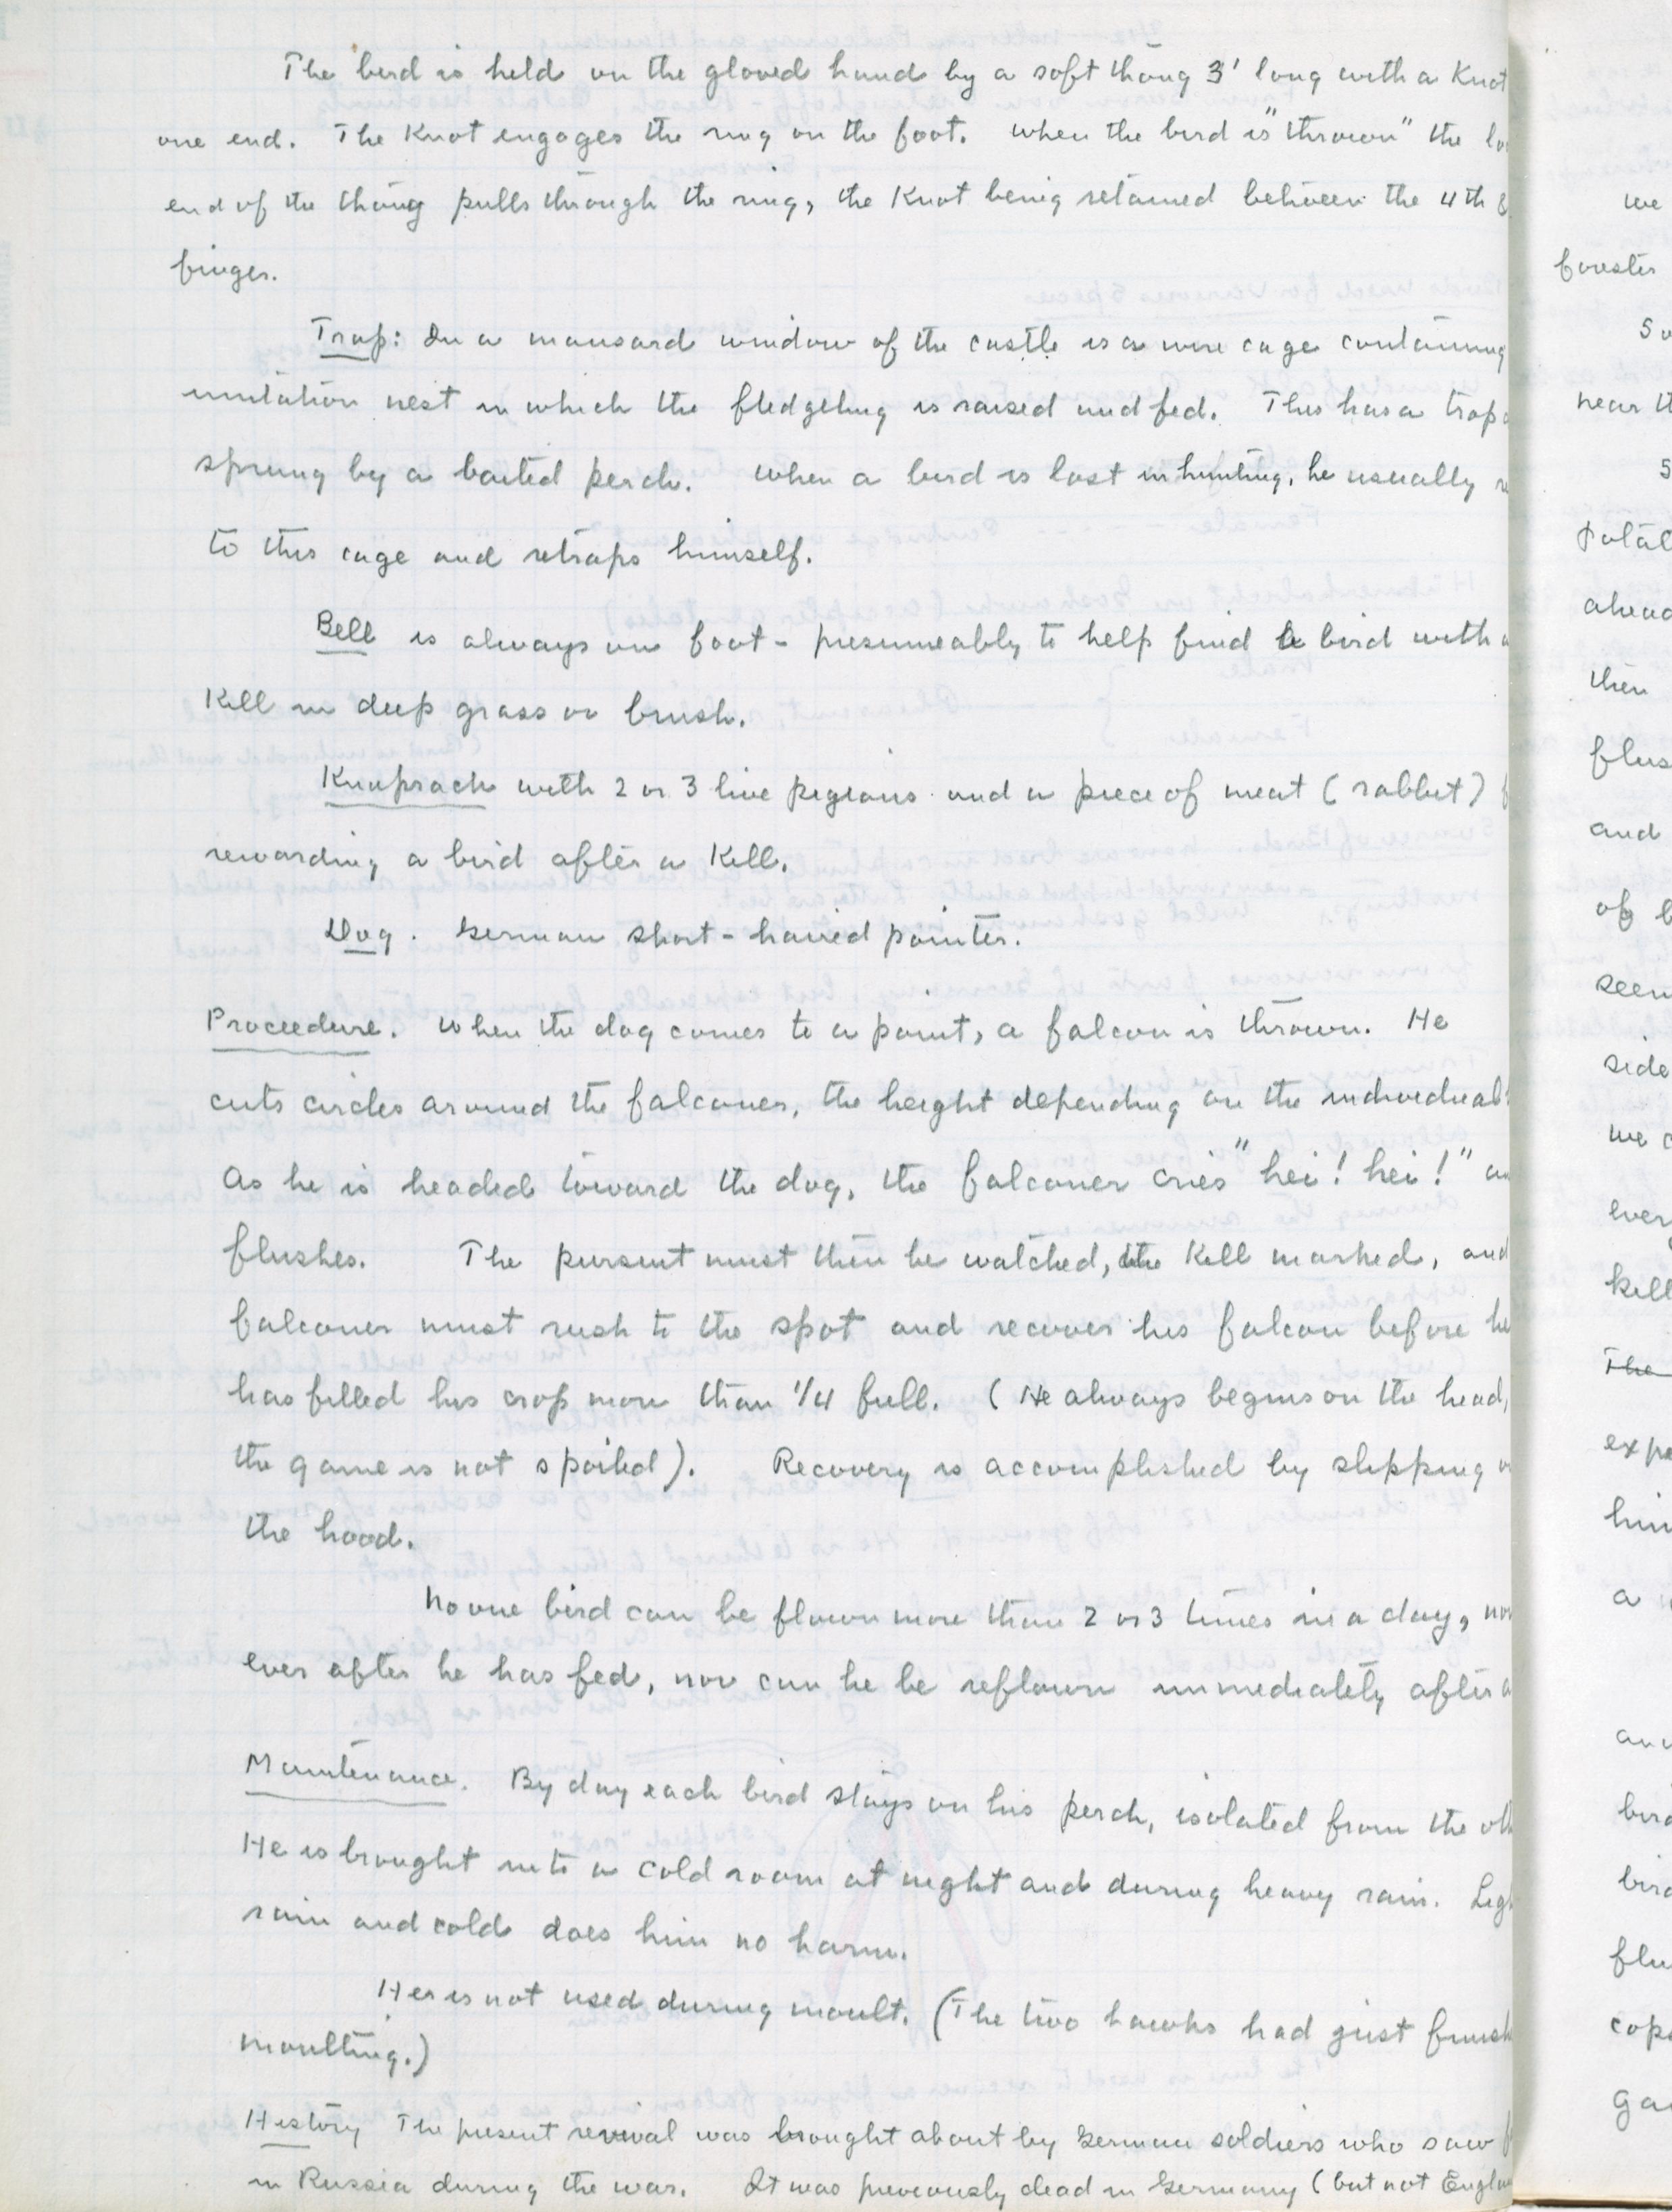 The bird is held on the gloved hand by a soft thong 3' long with a Knot
one end. The Knot engages the ring on the foot. When the bird is "thrown" the
end of the thong pulls through the ring, the Knot being retained between the 4th &
finger.
Trap: In a mansard window of the castle is a wire cage containing
imitation nest in which the fledgeling is raised and fed. This has a trap
sprung by a baited perch. When a bird is lost in hunting, he usually
to this cage and retraps himself.
Bell is always on foot - presumeably to help find a bird with a
Kill in deep grass or brush.
Knapsack with 2 or 3 live pigeons and a piece of meat (rabbit)
rewarding a bird after a Kill.
Dog. German short-haired pointer.
Proceedure. When the dog comes to a point, a falcon is thrown. He
cuts circles around the falconer, the height depending on the individual
As he is headed toward the dog, the falconer cries "hei! hei!"
flushes. The pursuit must then be watched, the Kill marked, and
falconer must rush to the spot and recover his falcon before he
has filled his crop more than 1/4 full. (He always begins on the head,
the game is not spoiled). Recovery is accomplished by slipping
the hood.
No one bird can be flown more than 2 or 3 times in a day, nor
ever after he has fed, nor can he be reflown immediately after a
Maintenance. By day each bird stays on his perch, isolated from the oth
He is brought into a cold room at night and during heavy rain. Ligh
rain and cold does him no harm.
He is not used during moult. (The two hawks had just finish
moulting.)
History The present revival was brought about by German soldiers who saw
in Russia during the war. It was previously dead in Germany (but not Englan
we
forester
So
near th
S
potat
ahead
then
flus
and
of b
seem
side
we c
every
kill
The
expe
him
a
and
bird
bird
flu
cops
ga